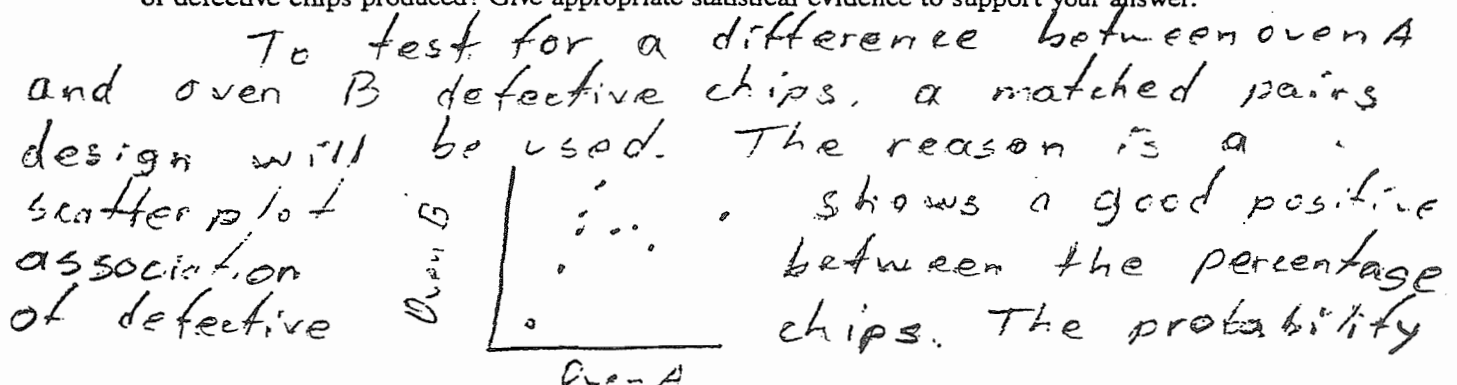 of defective chips produced? Give appropriate statistical evidence to support your answer.
To test for a difference between oven A
and oven B defective chips, a matched pairs
design will be used. The reason is a
scatter plot shows a good positive
association between the percentage
of defective chips. The probability
Oven B
Oven A